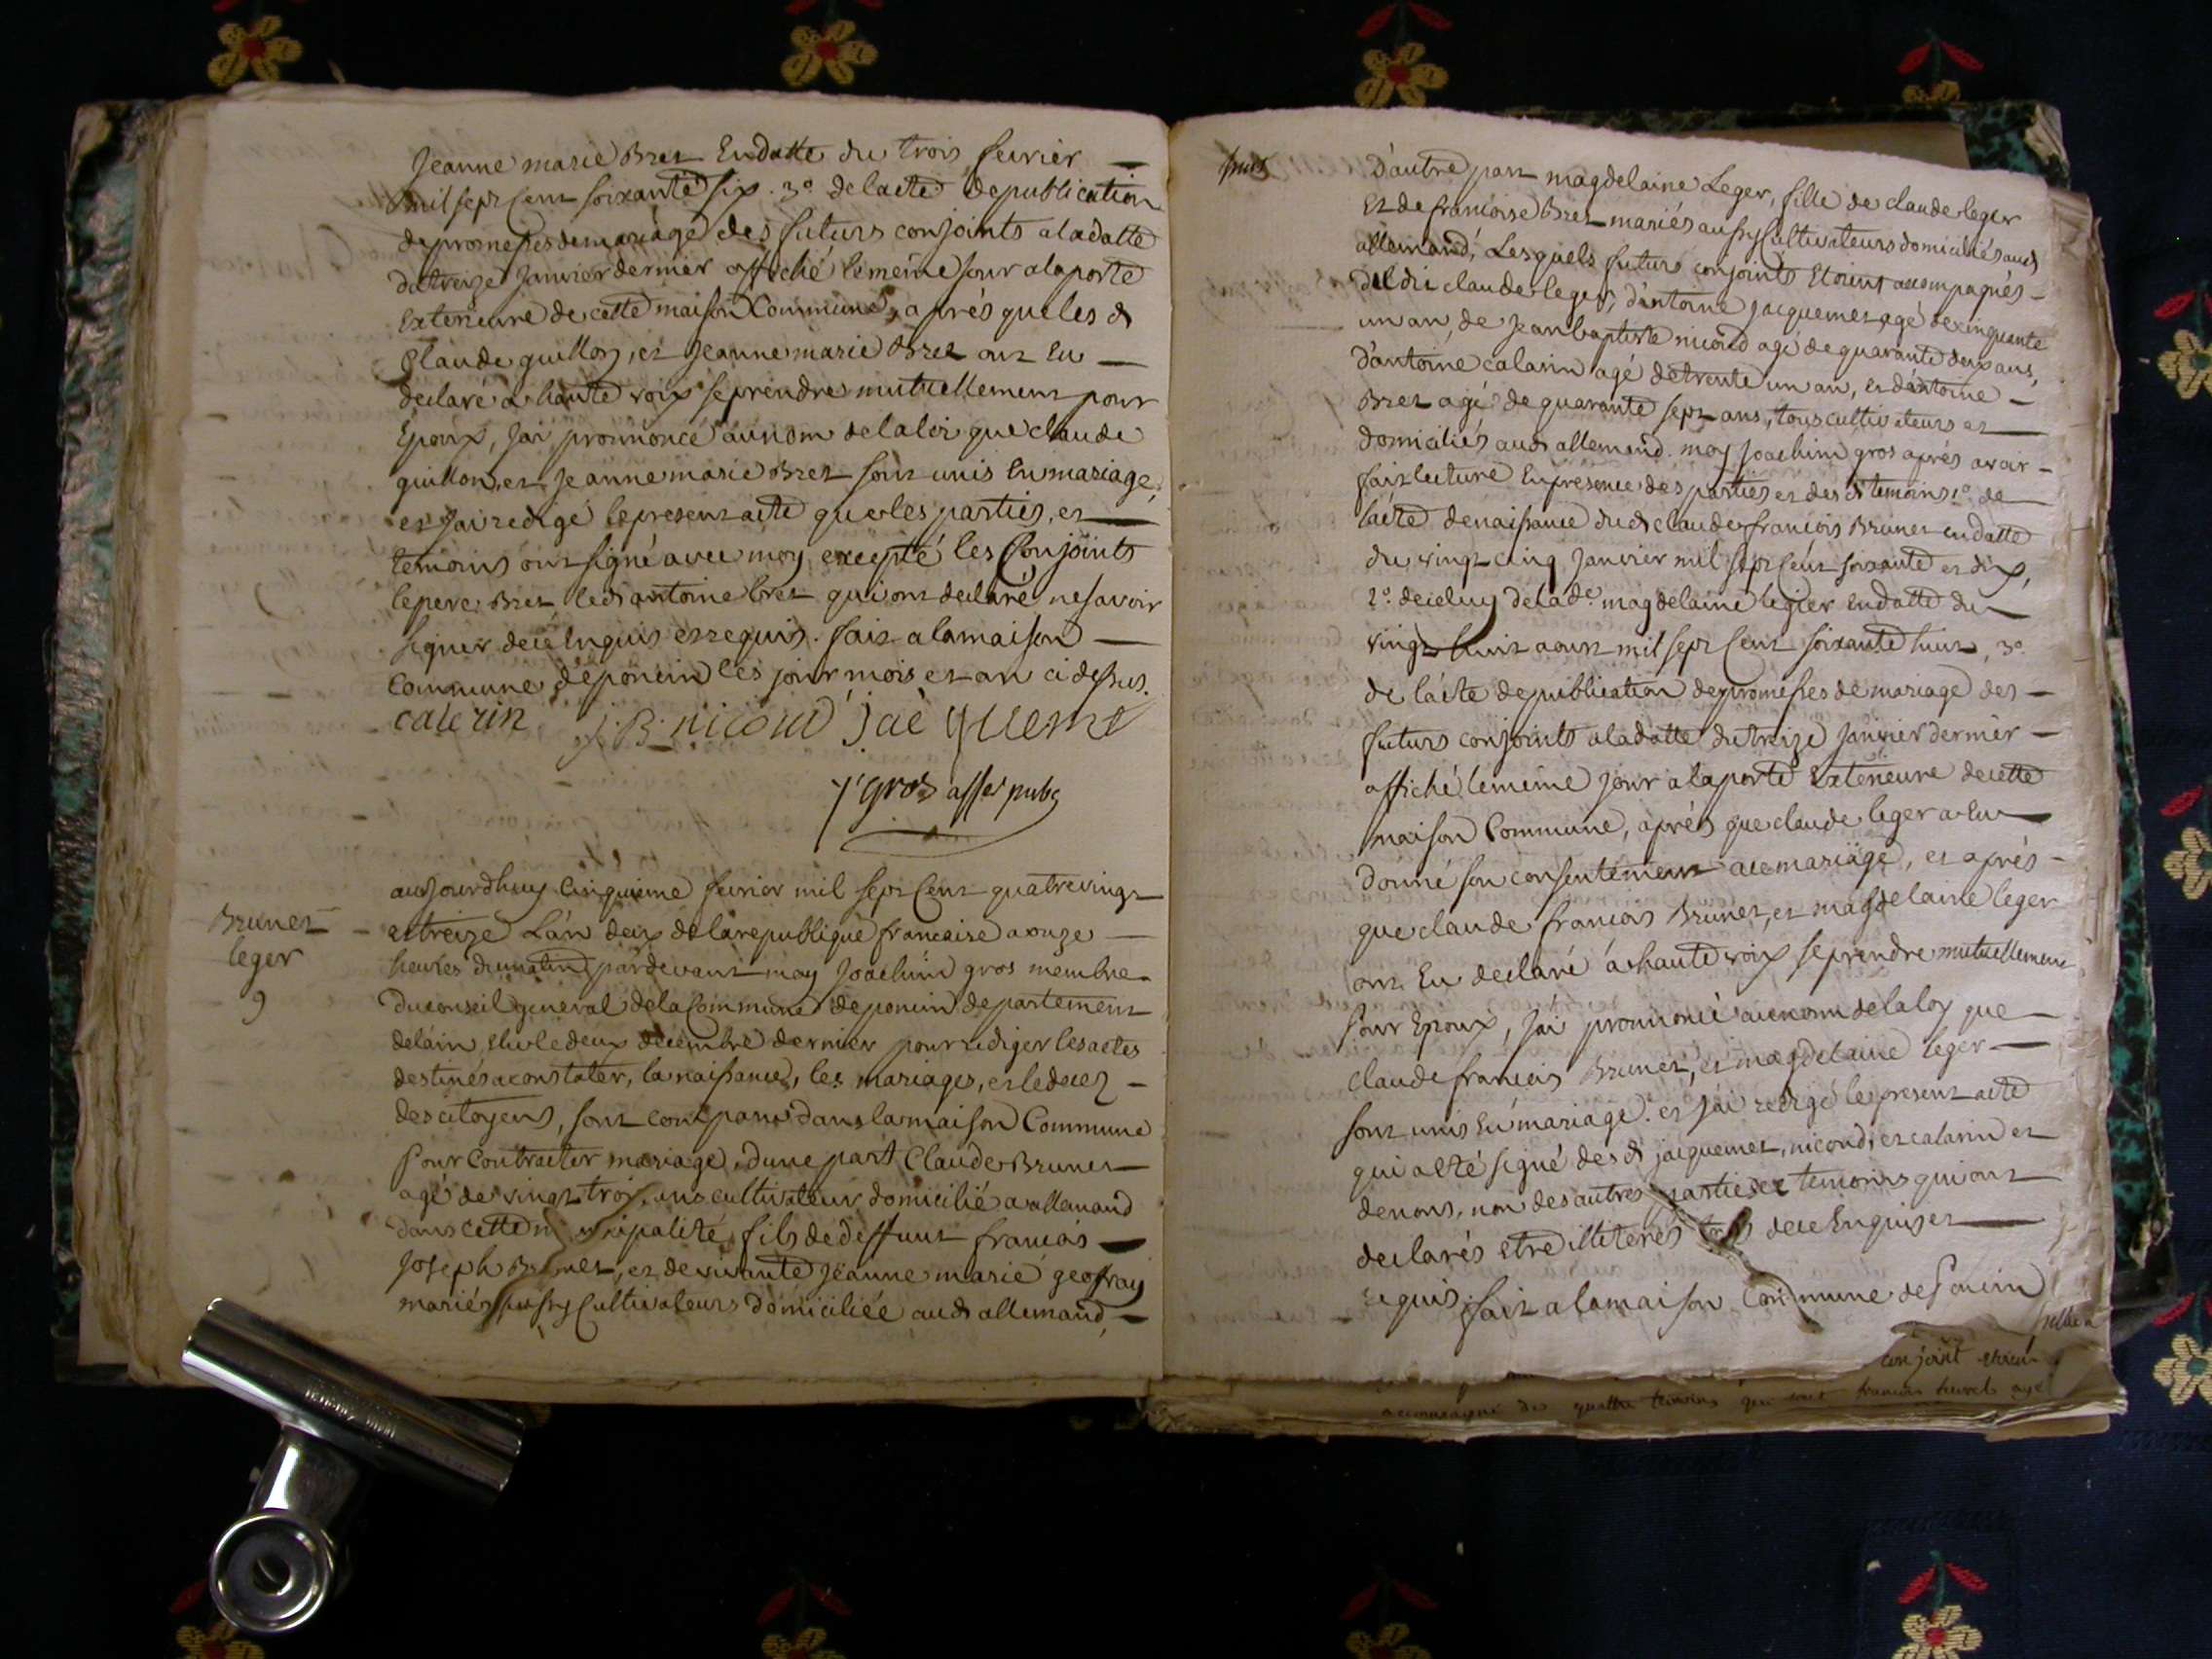 Jeanne marie Bret En datte du trois fevrier
mil sept Cent soixante six. 3° de lacte de publication
de promesses de mariage des futurs conjoints a la datte
du treize Janvier dernier affiché le meme Jour a la porte
Exterieure de cette maison Commune, après que les d
Claude guillon, et Jeanne marie Bret ont Eu
declaré a haute voix se prendre mutuellement pour
Epoux, Jai prononcé au nom de la loi que claude
guillon, et Jeanne marie Bret sont unis En mariage,
et Jai redigé le present acte que les parties, et
temoins ont signé avec moy, excepté les Conjoints
le pere Bret, led antoine bret qui ont declaré ne savoir
signer de ce Enquis et requis. fait a la maison
Commune de poncin les jour mois et an ci dessus.
calerin J. B. nicoud jacquemet
J gros off er pub c
aujourdhuy Cinquieme fevrier mil sept Cent quatrevingt
Brunet
et treize Lan deux de la republique francaise a onze
leger
heures du matin, pardevant moy Joachim gros membre
9
du conseil general de la Commune de poncin departement
de lain, elu le deux decembre dernier pour rediger les actes
destinés a constater, la naissance, les mariages, et le deces
des citoyens, sont comparus dans la maison Commune
Pour Contracter mariage, dune part Claude Brunet
agé de vingt trois ans cultivateur domicilié a allemand
dans cette municipalité, fils de deffunt francois
Joseph Brunet, et de vivante Jeanne marie geoffray
mariés aussy Cultivateurs domiciliée aud allemand,
D'autre part magdelaine Leger, fille de claude leger
Et de francoise Bret mariés aussy Cultivateurs domiciliés aud
allemand, Lesquels futurs conjoints Etoient accompagnés
dudit claude leger, d'antoine jacquemet agé de cinquante
un an, de Jean baptiste nicoud agé de quarante deux ans,
d'antoine calarin agé de trente un an, et d'antoine
Bret agé de quarante sept ans, tous cultivateurs et
domiciliés aud allemand. moy Joachim gros aprés avoir
fait lecture En presence des parties et des d temoins 1° de
l'acte de naissance du d claude francois Brunet en datte
du vingt cinq Janvier mil sept Cent soixante et dix,
2° de celuy de la de magdelaine legier En datte du
vingt huit aout mil sept Cent soixante huit, 3°
de lácte de publication de promesses de mariage des
futurs conjoints a la datte du treize Janvier dernier
affiché le meme Jour a la porte Exterieure de cette
maison Commune, aprés que claude leger a Eu
donné son consentement a ce mariage, et aprés
que claude francois Brunet, et magdelaine leger
ont Eu declaré á haute voix se prendre mutuellement
Pour Epoux, Jai prononcé au nom de la loy que
Claude francois Brunet, et magdelaine leger
sont unis En mariage. et Jai redigé le present acte
qui a eté signé des d jacquemet, nicoud, et calarin et
de nous, non des autres parties et temoins qui ont
declarés etre illiterés de ce Enquis et
requis. fait a la maison Commune de Poncin
conjoint etoient
accompagné des quattre temoins qui sont francois agé